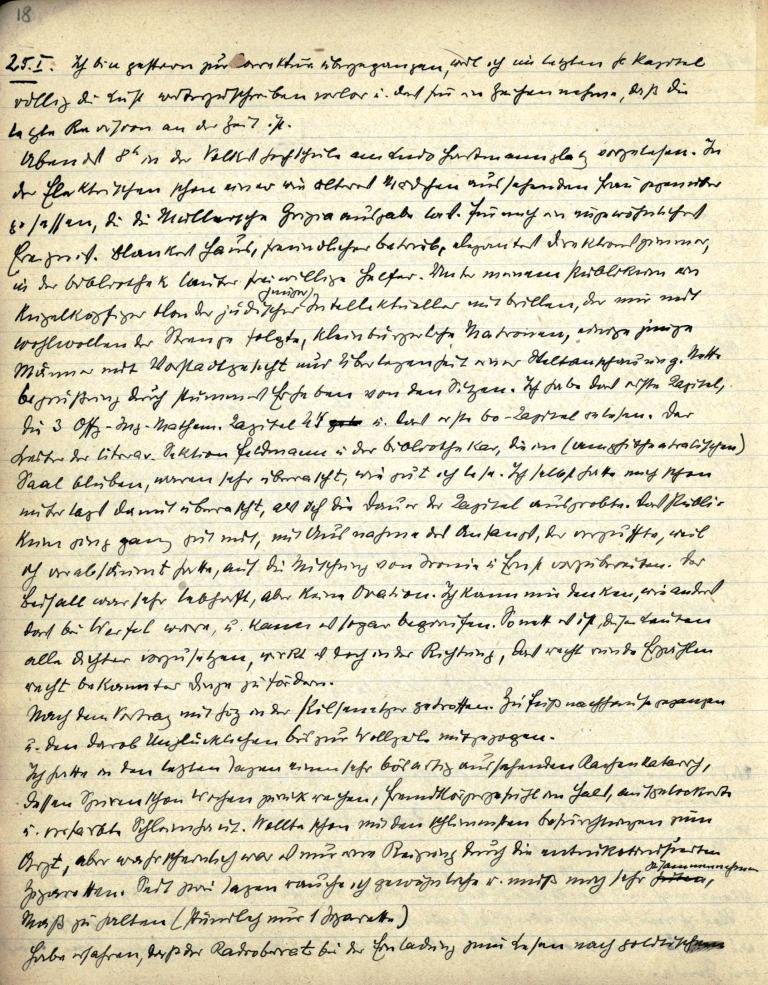 18
25. I. Ich bin gestern zur Correktur übergegangen, weil ich im letzten Kapitel
völlig die Lust weiterzuschreiben verlor u. das für ein Zeichen nehme, daß die
letzte Revision an der Zeit ist.
Abends 8h in der Volkshochschule am Ludo Hartmannplatz vorgelesen. In
der Elektrischen schon einer wie älteres Mädchen aussehenden Frau gegenüber
gesessen, die die Müllersche Grigia ausgabe las. Für mich ein ungewöhnliches
Ereignis. Blankes Haus, freundlicher Betrieb, elegantes Direktionszimmer,
in der Bibliothek lauter freiwillige Helfer. Unter meinem Publikum ein
kugelköpfiger blonder jüdischer junger Intellektueller mit Brillen, der mir mit
wohlwollender Strenge folgte, kleinbürgerliche Matronen, einige junge
Männer mit Vorstadtgesicht und Überlegenheit einer Weltanschauung. Nette
begrüßung durch stummes Erheben von den Sitzen. Ich habe das erste Kapitel,
die 3 Off-Ing-Mathem. Kapitel u. das erste Bo-Kapitel gelesen. Der
Leiter der literar. Sektion Feldmann u der Bibliothekar, die im (amphitheatralischen)
Saal blieben, waren sehr überrascht, wie gut ich lese. Ich selbst hatte mich schon
mittags damit überrascht, als ich die Dauer der Kapitel ausprobte. Das Publi-
kum ging ganz gut mit, mit Ausnahme des Anfangs, der verpuffte, weil
ich verabsäumt hatte, auf die Mischung von Ironie u Ernst vorzubereiten. Der
Beifall war sehr lebhaft, aber keine Ovation. Ich kann mir denken, wie anders
das bei Werfel wäre, u. kann es sogar begreifen. So nett es ist, diesen Leuten
alle Dichter vorzusetzen, wirkt es doch in der Richtung, das recht runde Erzählen
recht bekannter Dinge zu fördern.
Nach dem Vortrag mit in der Pilsenetzer getroffen. Zu Fuß nachhause gegangen
u. den darob Unglücklichen bis zur Wollzeile mitgezogen.
Ich hatte in den letzten Tagen einen sehr bösartig aussehenden Rachenkatarrh,
dessen Spuren schon Wochen zurückreichen, Fremdkörpergefühl im Hals, aufgelockerte
u. verfärbte Schleimhaut. Wollte schon mit den schlimmsten Befürchtungen zum
Arzt, aber wahrscheinlich war es nur eine Reizung durch die entnikotinisierten
Zigaretten. Seit zwei Tagen rauche ich gewöhnliche u. muß mich sehr zusammennehmen,
Maß zu halten (stündlich nur 1 Zigarette)
Habe erfahren, daß der bei der Einladung zum Lesen nach